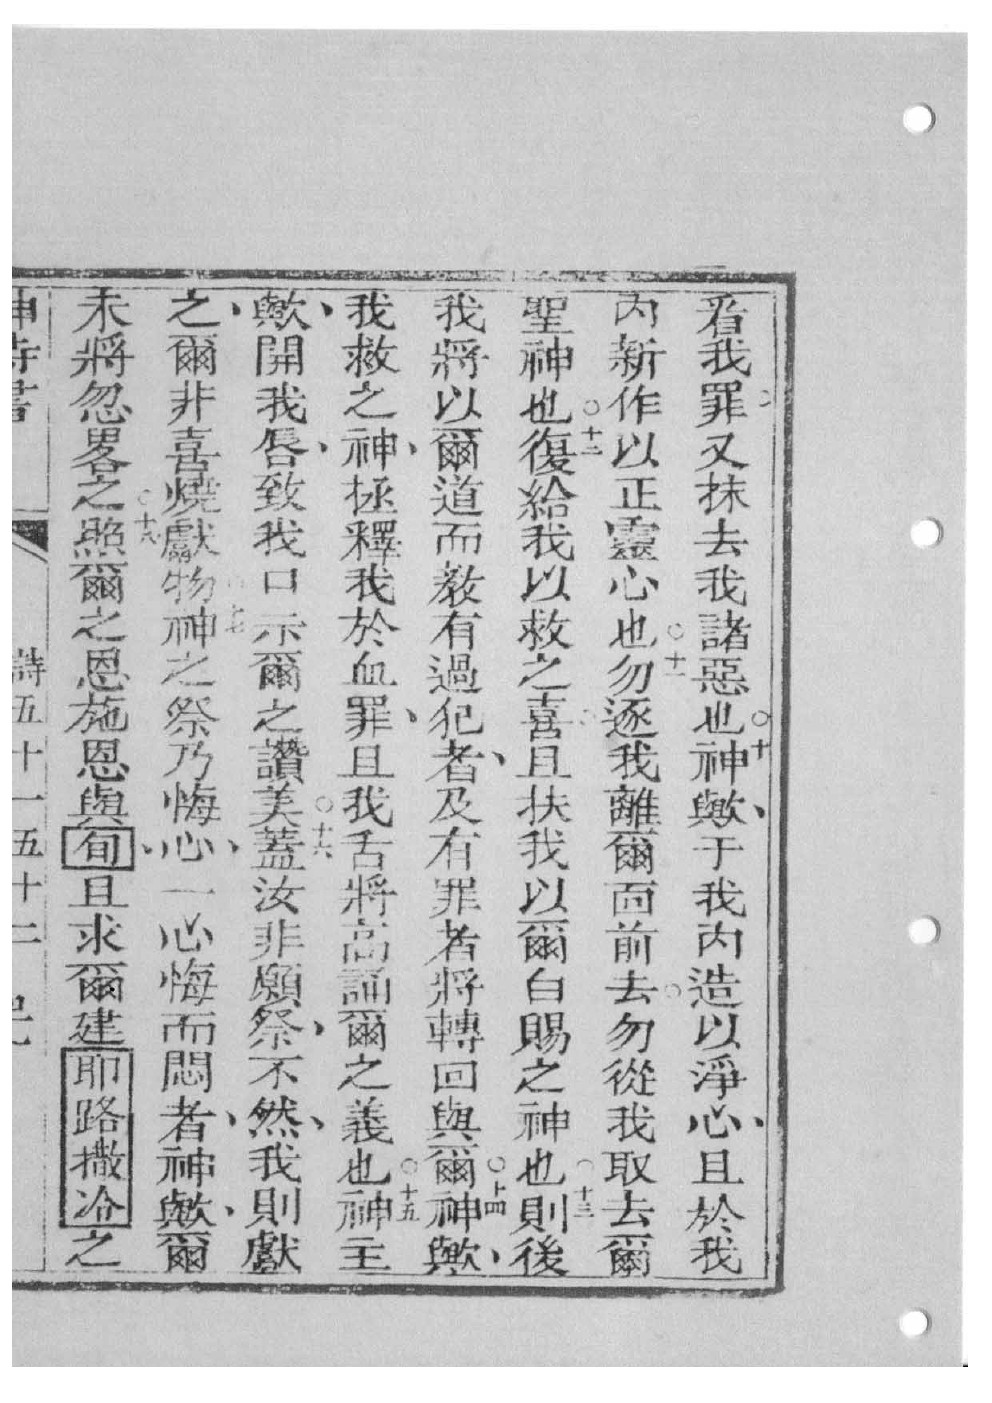 看我罪又抹去我諸惡也○十神歟、于我內造以淨心、且於我
內新作以正靈心也○十一勿逐我離爾面前去○勿從我取去爾
聖神也○十二復給我以救之喜○且扶我以爾白賜之神也○十三則後
我將以爾道而教有過犯者、及有罪者將轉回與爾○十四神歟、
我救之神、拯釋我於血罪、且我舌將高誦爾之義也○十五神主
歟、開我唇、致我口示爾之讚美○十六蓋汝非願祭、不然、我則獻
之、爾非喜燒獻物○十七神之祭乃悔心、一心悔而悶者、神歟、爾
未將忽畧之○十八照爾之恩施恩與旬、且求爾建耶路撒冷之
神詩書 詩五十一五十二